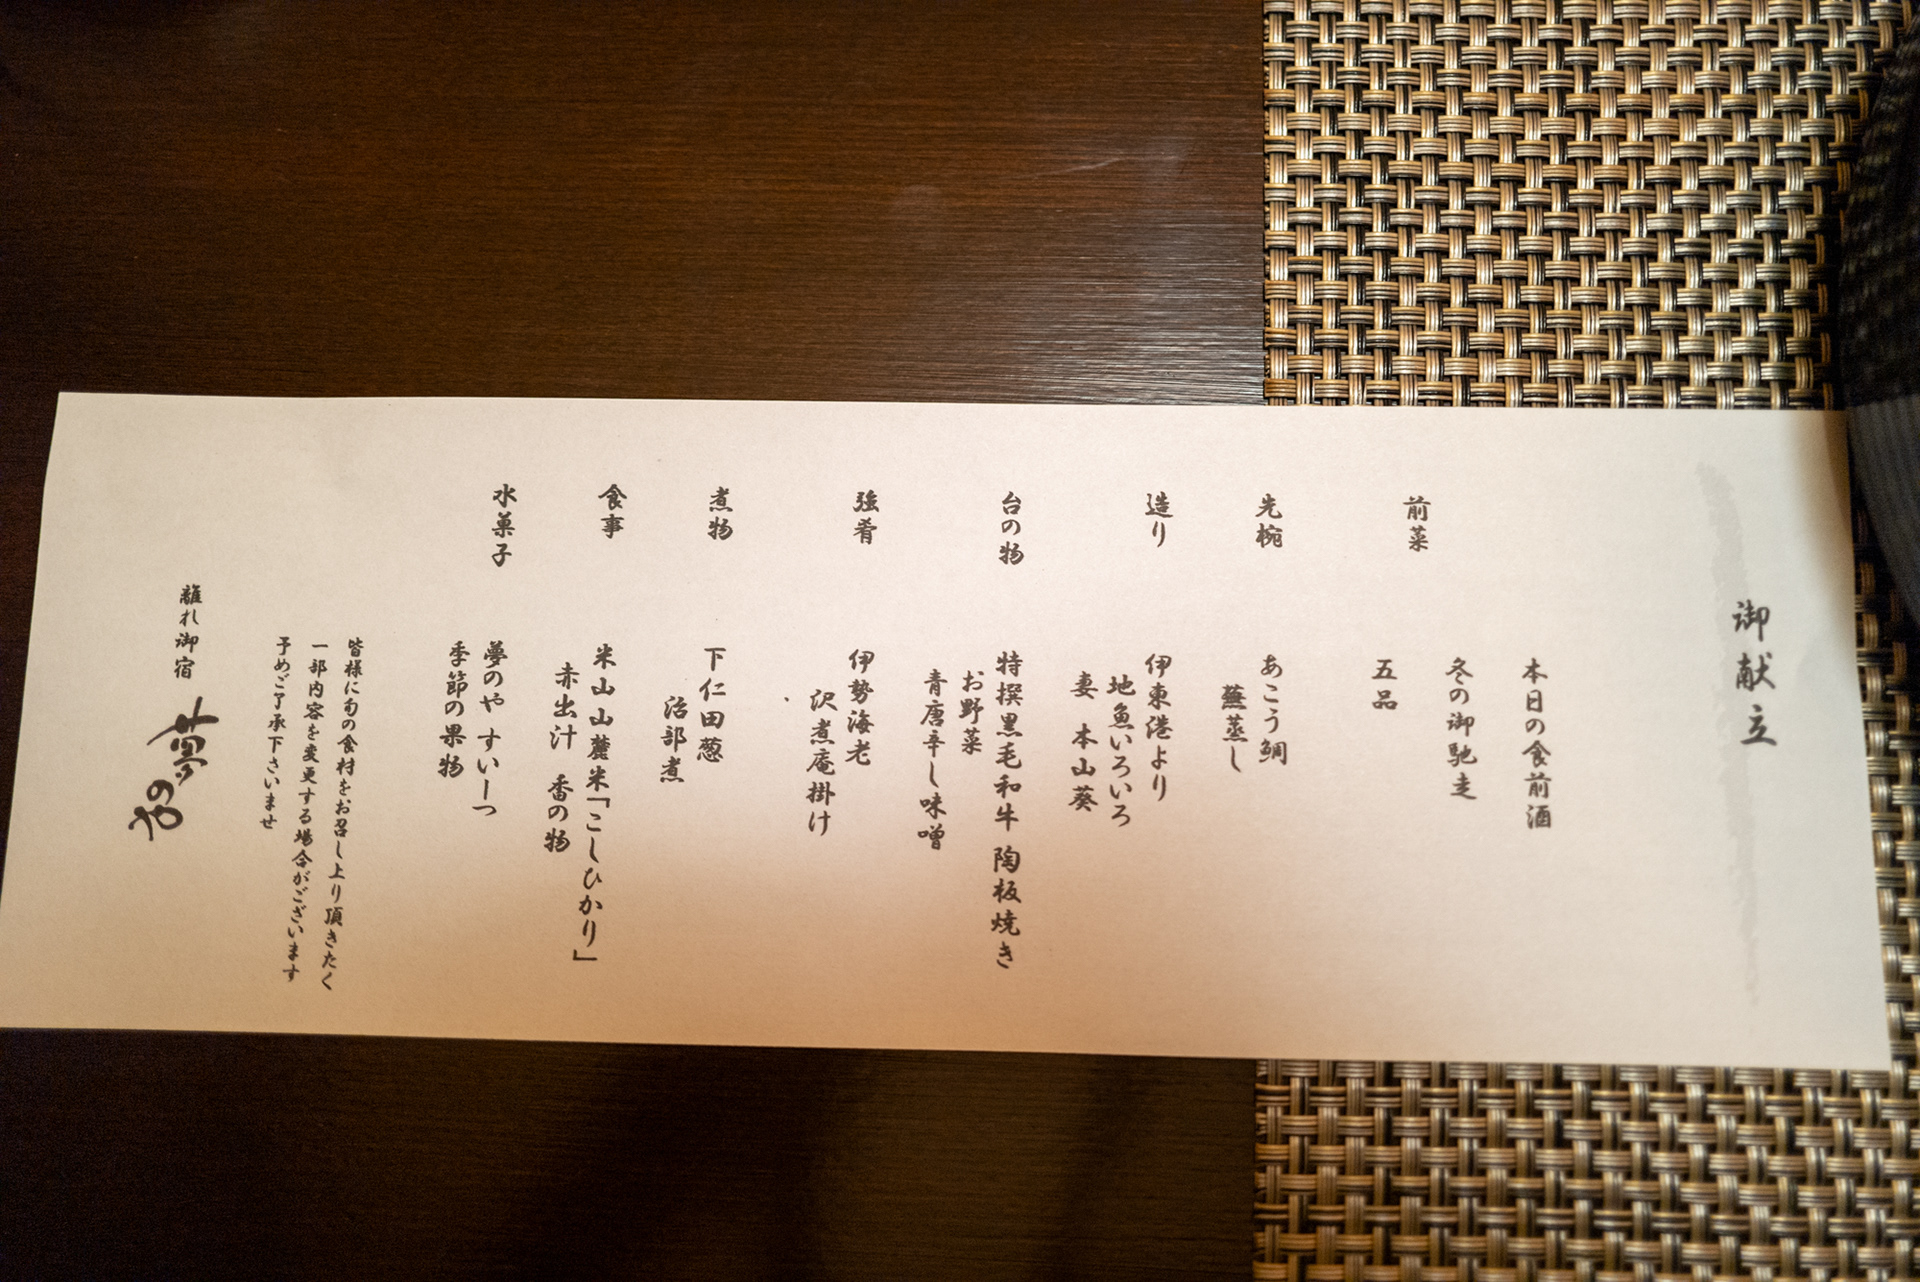 御献立
本日の食前酒
前菜
冬の御馳走
五品
先椀
あこう鯛
蕪蒸し
造り
伊東港より
地魚いろいろ
妻 本山葵
台の物
特撰黒毛和牛 陶板焼き
お野菜
青唐辛し味噌
強肴
伊勢海老
沢煮庵掛け
煮物
下仁田葱
治部煮
食事
米山山麓米「こしひかり」
赤出汁 香の物
水菓子
夢のや すいーつ
季節の果物
皆様に旬の食材をお召し上り頂きたく
一部内容を変更する場合がございます
予めご了承下さいませ
離れ御宿
夢のや